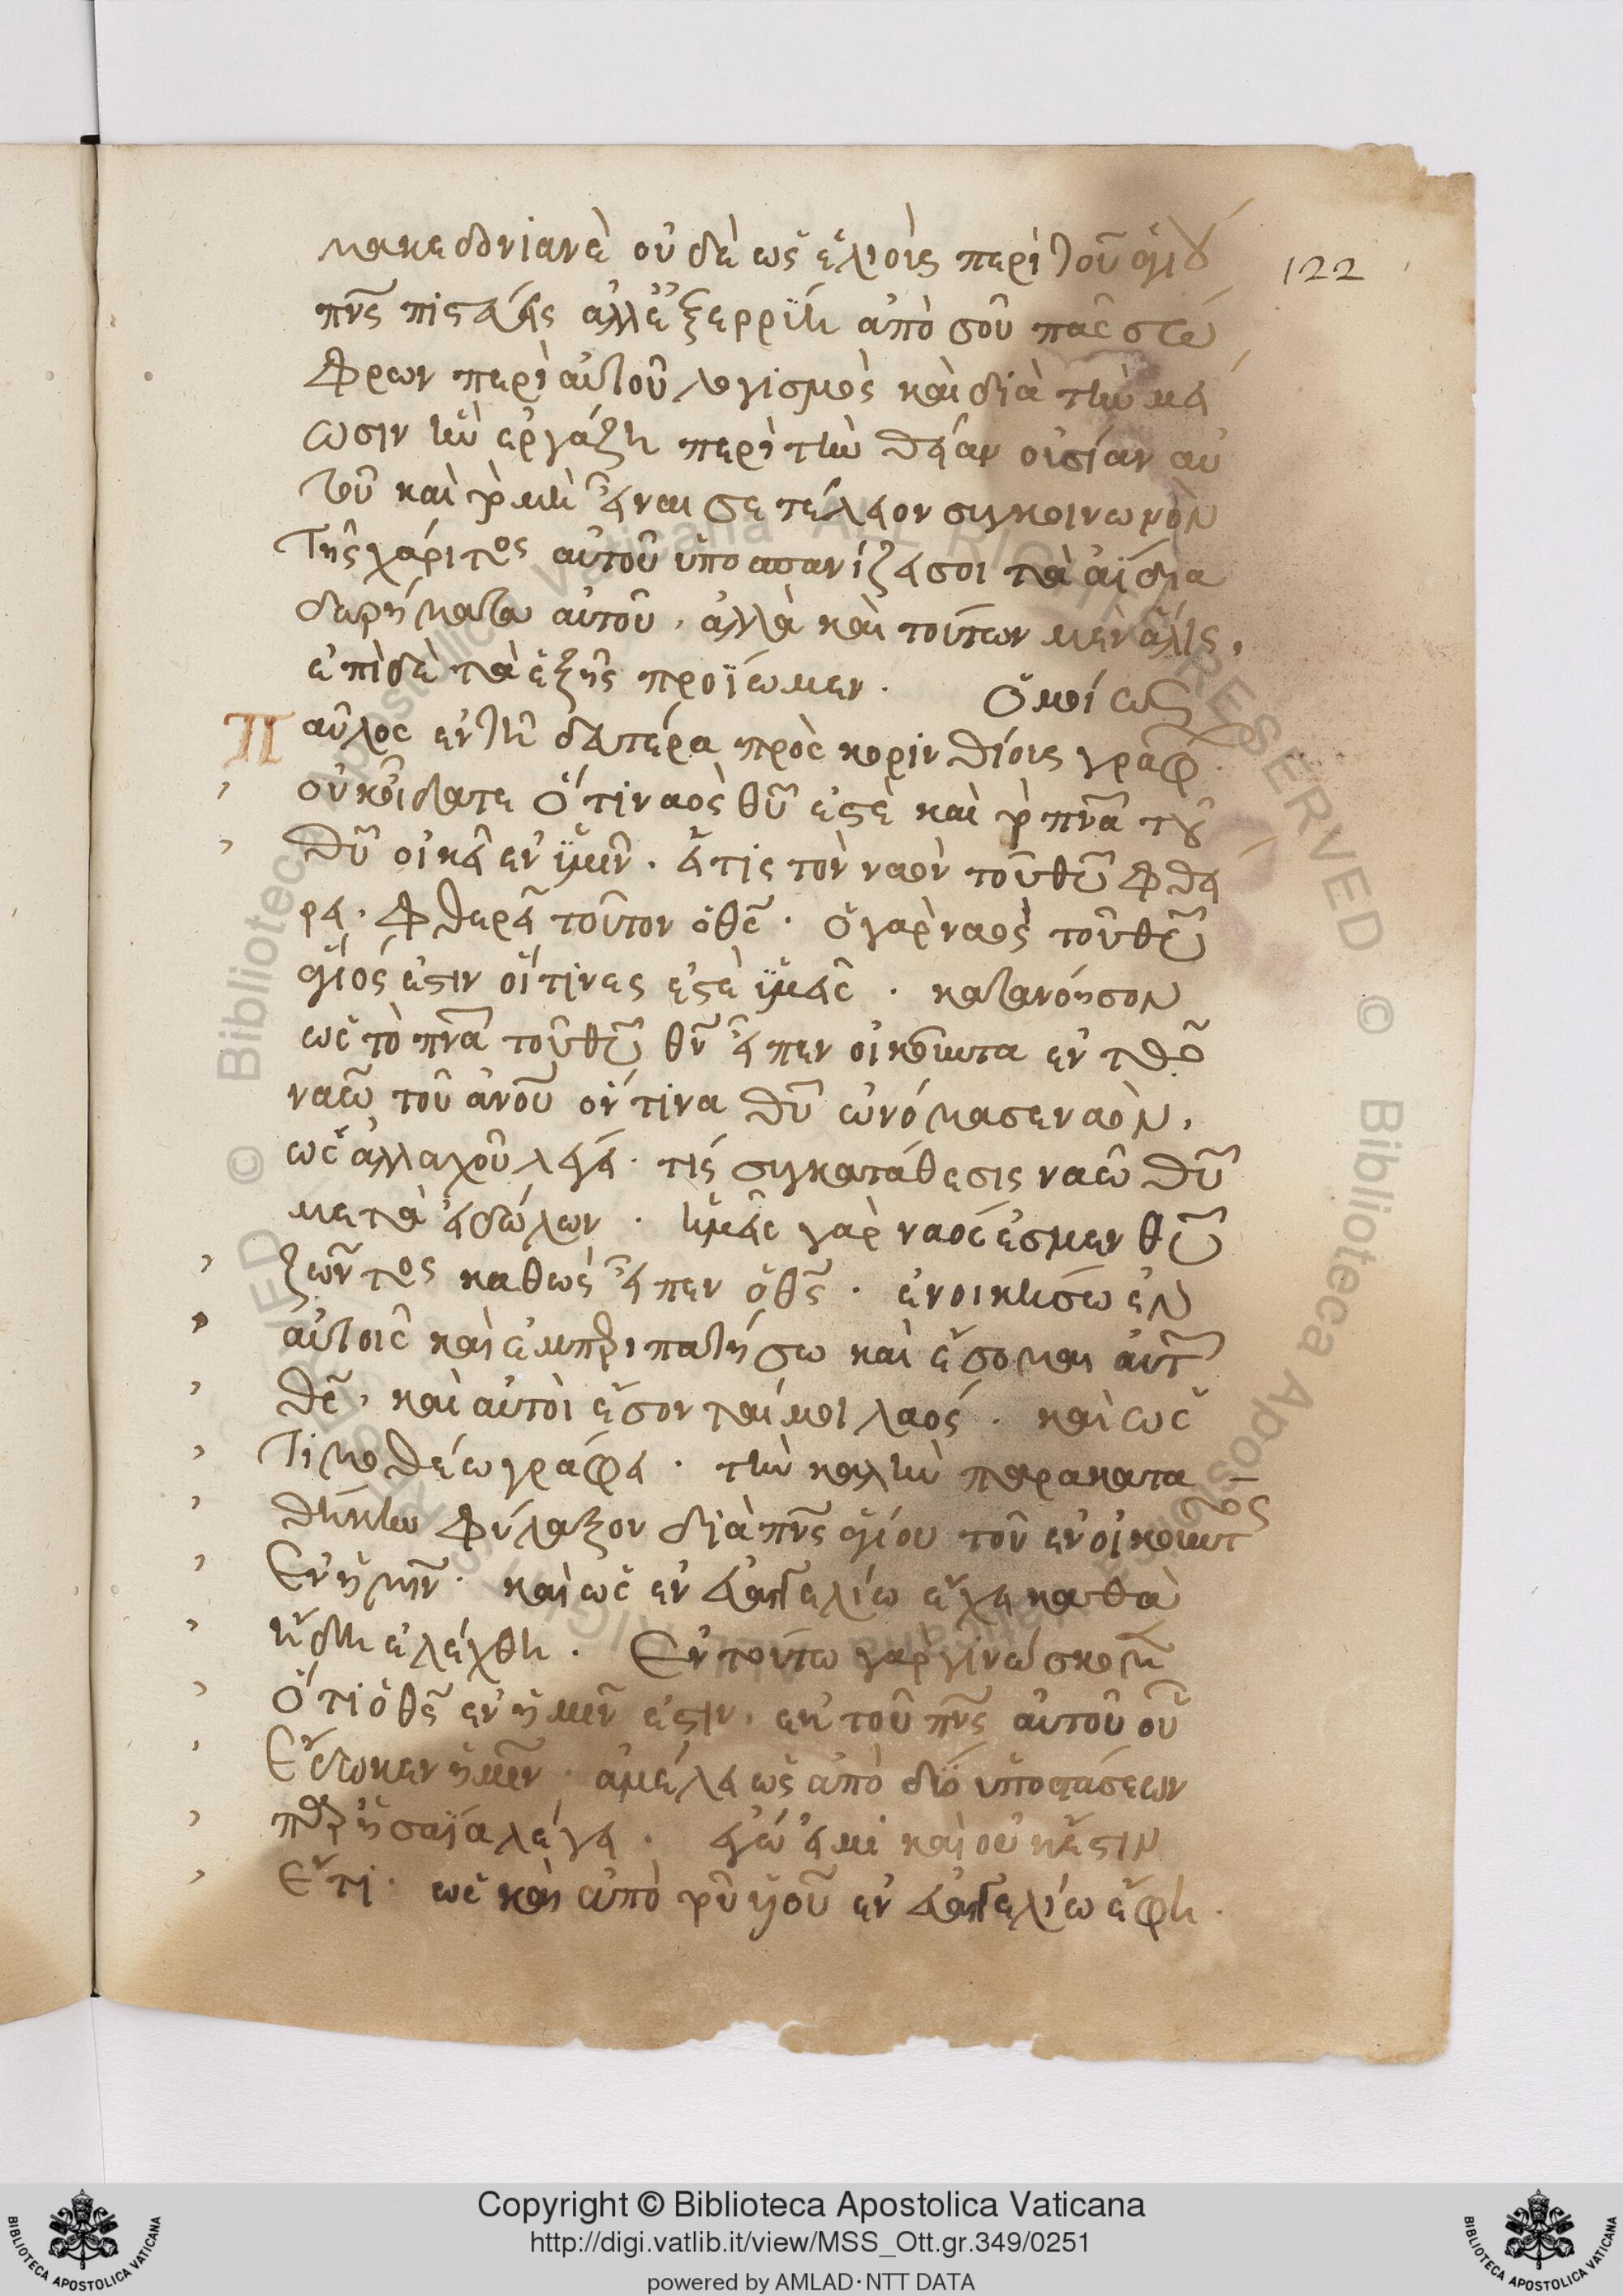 μακεδονιανὲ οὐδὲ ὡς ἕλιοις περὶ τοῦ ἁγίου
122
πνς πιστεύεις ἀλλ' ἐξερρύη ἀπὸ σοῦ πᾶς σώ
φρων περὶ αὐτοῦ λογισμὸς καὶ διὰ τὴν μεί
ωσιν ἣν ἐργάζη περὶ τὴν θείαν οὐσίαν αὐ
τοῦ καὶ τὸ μὴ εἶναι σε τέλειον συγκοινωνὸν
τῆς χάριτος αὐτοῦ ὑποσπανίζει σοι τὰ ἀΐδια
δωρήματα αὐτοῦ, ἀλλὰ καὶ τούτων μὲν ἅλις,
ἐπὶ δὲ τὰ ἑξῆς προΐωμεν. Ὁμοίως
Παῦλος ἐν τῆ δευτέρα πρὸς κορινθίους γράφει
οὐκ οἴδατε ὅτι ναὸς θυ ἐστὲ καὶ τὸ πνα τοῦ
θυ οἰκεῖ ἐν ὑμῖν. εἴ τις τὸν ναὸν τοῦ θυ φθεί
ρει. φθερεῖ τοῦτον ὁ θς. ὁ γὰρ ναὸς τοῦ θυ
ἅγιός ἐστιν οἵτινες ἐστὲ ὑμεῖς. κατανόησον
ὡς τὸ πνα τοῦ θυ θν εἶπεν οἰκοῦντα ἐν τῶ
ναῶ τοῦ ανου ὅντινα θυ ὠνόμασε ναὸν,
ὡς ἀλλαχοῦ λέγει. τίς συγκατάθεσις ναῶ θυ
μετὰ εἰδώλων. ἡμεῖς γὰρ ναὸς ἐσμεν θυ
ζῶντος καθὼς εἶπεν ὁ θς. ἐνοικήσω ἐν
αὐτοῖς καὶ ἐμπεριπατήσω καὶ ἔσομαι αὐτῶν
θς, καὶ αὐτοὶ ἔσονταί μοι λαός. καὶ ὡς
Τιμοθέω γράφει. τὴν καλὴν παρακατα
θήκην φύλαξον διὰ πνς ἁγίου τοῦ ἐνοικοῦντος
ἐν ἡμῖν. καὶ ὡς ἐν εὐαγγελίω εἶχε καθὰ
ἤδη ἐλέχθη. Ἐν τούτω γὰρ γινώσκομεν
ὅτι ὁ θς ἐν ἡμῖν ἐστιν, ἐκ τοῦ πνς αὐτοῦ οὗ
ἔδωκεν ἡμῖν. ἀμέλει ὡς ἀπὸ δύο ὑποστάσεων
ἡσαΐα λέγει. ἐγώ εἰμι καὶ οὐκ ἔστιν
ἔτι. ὡς καὶ ἀπὸ τοῦ υἱοῦ ἐν εὐαγγελίω ἔφη.
Copyright © Biblioteca Apostolica Vaticana
http://digi.vatlib.it/view/MSS_Ott.gr.349/0251
powered by AMLAD·NTT DATA